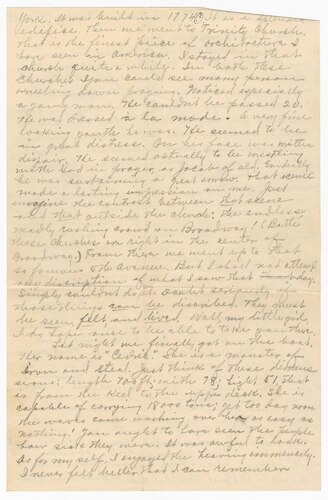 York. It was build in 1774. It is a
edifice. Then we went to Trinity Church.
that is the finest piece of architecture I
have seen in America. I stayed in that
church quite a while. In both these
Churches you could see many persons
kneeling down praying. Noticed especially
a young man, He couldn't be passed 20.
He was dressed à la mode. A very fine
looking youth he was. He seemed to be
in great distress. On his face was written
despair. He seemed actually to be wrestling
with God in prayer, as Jacob of old. Evidently
he was sustaining a great sorrow. That scene
made a lasting impression on me. Just
imagine the contrast between that scene
and that outside the church: the endless,
madly rushing crowd on Broadway! (Both
these Churches are right in the center of
Broadway.) From there we went up to that
so famous 5th Avenue. But I shall not attempt
any description of what I saw that day.
Simply couldn't do it. Doubt seriously if
those things can be described. They must
be seen, felt, and lived. Well, my little girl
I do hope some to be able to take you there.
Last night we finally got on the boat.
Her name is "Cedric." She is a monster of
iron and steel. Just think of these dimen
sions: length 700 ft, width 75, hight 51, that is
from the keel to the upper deck. She is
capable of carrying 18000 tons; yet too day now
the waves came washing over her as easy as
nothing. You ought to have seen the people
how sick they were. It was awful to look.
As for myself, I enjoyed the heaving immensely.
I never felt better that I can remember